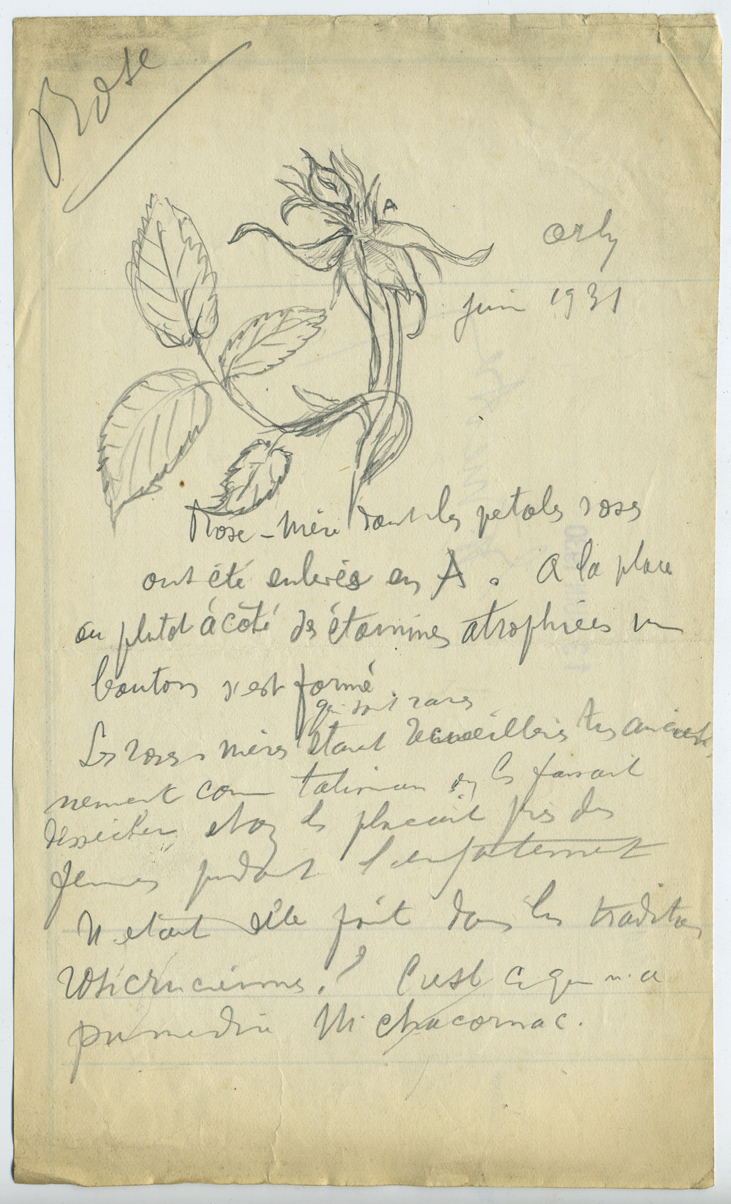 Rose
A
Orly
juin 1931
Rose-mère dont les petales roses
ont été enlevés en A. A la place
ou plutot à coté des étamines atrophiées un
bouton s'est formé
qui sont rares
Les roses mères étant recueillies très ancien-
nement comme talisman on les faisait
dessécher, et on les placait près des
femmes pendant l'enfantement
N'etait elle point dans les traditions
rosicruciennes? C'est ce que n'a
pu me dire M. Chacornac.